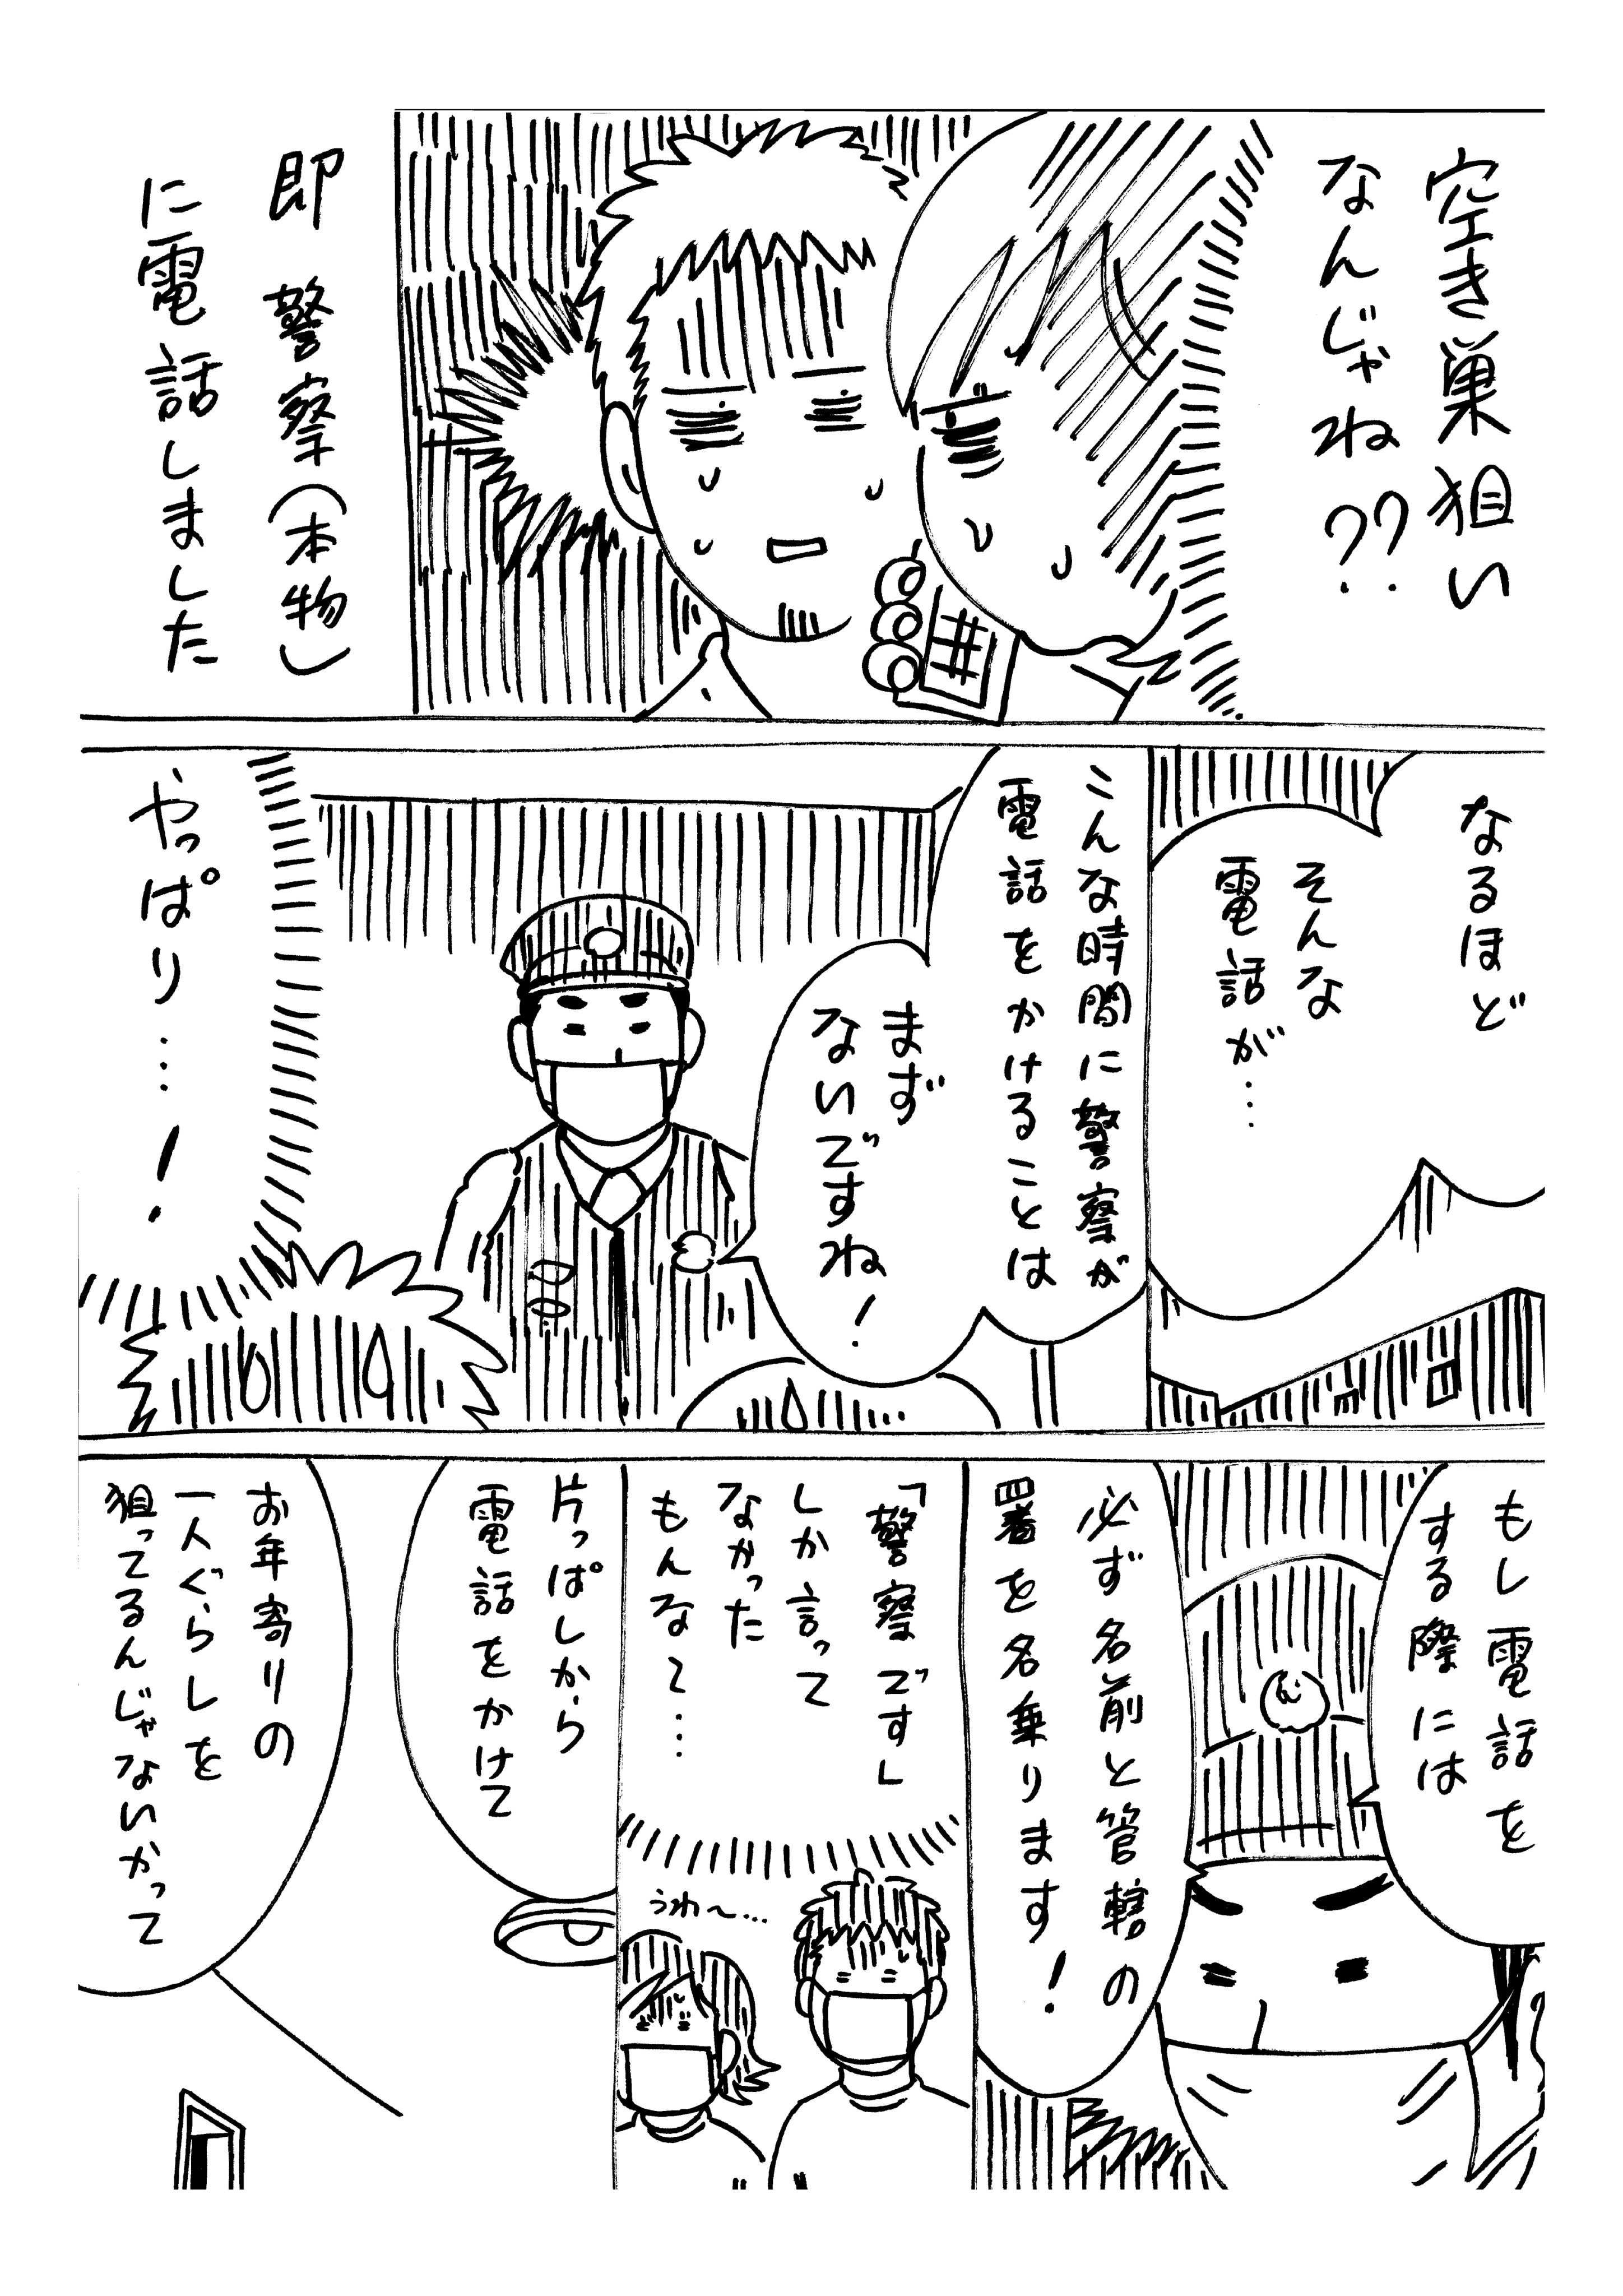 空き巣狙い
なんじゃね??
即 警察(本物)
に電話しました
なるほど
そんな
電話が…
こんな時間に警察が
電話をかけることは
まず
ないですね!
やっぱり…!
もし電話を
する際には
必ず名前と管轄の
署を名乗ります!
「警察です」
しか言って
なかった
もんな~…
うわ~…
片っぱしから
電話をかけて
お年寄りの
一人ぐらしを
狙ってるんじゃないかって